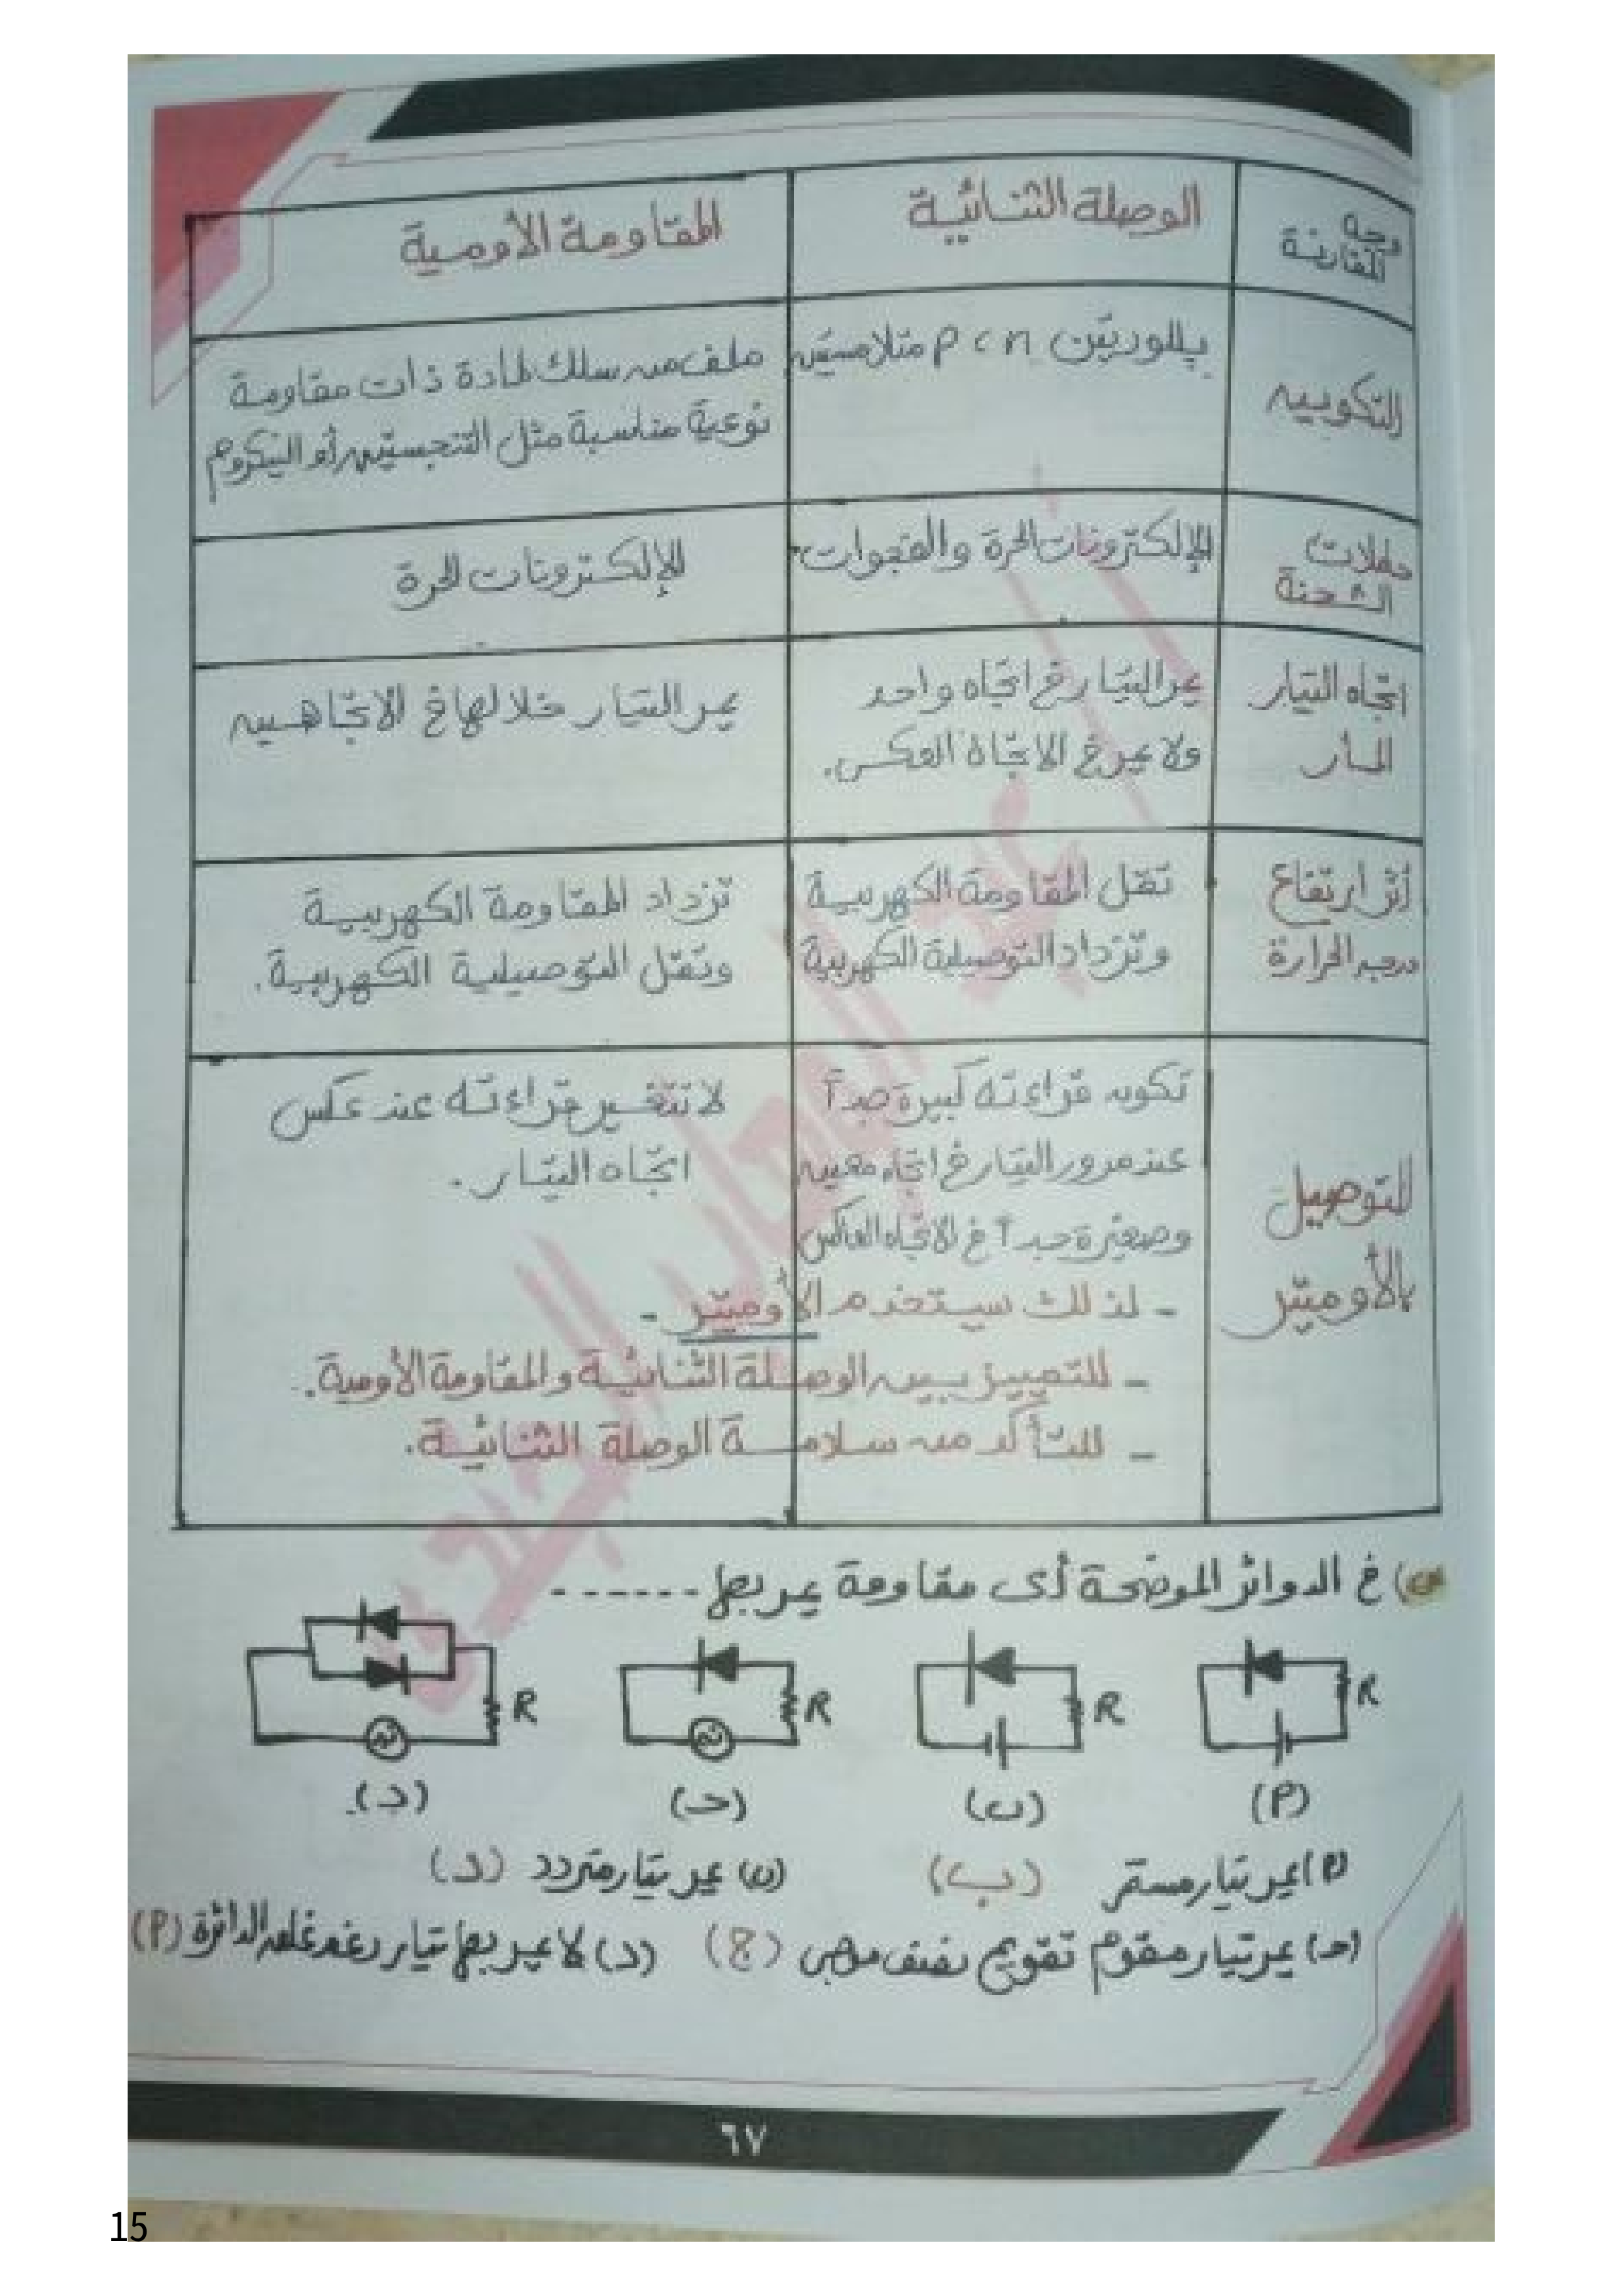 وجه
المقارنة
الوصلة الثنائية
المقاومة الأومية
التكوين
بللورتين p ، n متلامستين
ملف من سلك لمادة ذات مقاومة
نوعية مناسبة مثل التنجستين أو النيكروم
حاملات
الشحنة
الإلكترونات الحرة والفجوات
الإلكترونات الحرة
اتجاه التيار
المار
يمر التيار في اتجاه واحد
ولا يمر في الاتجاة العكس.
يمر التيار خلالها في الاتجاهين
أثر ارتفاع
درجه الحرارة
تقل المقاومة الكهربية
وتزداد التوصيلية الكهربية
تزداد المقاومة الكهربية
وتقل التوصيلية الكهربية.
التوصيل
بالأوميتر
تكون قراءته كبيرة جداً
عند مرور التيار في اتجاه معين
وصغيرة جداً في الاتجاه العاكس
لا تتغير قراءته عند عكس
اتجاه التيار.
- لذلك سيتخدم الأوميتر -
- للتمييز بين الوصلة الثنائية والمقاومة الأومية.
- للتأكد من سلامة الوصلة الثنائية.
س) في الدوائر الموضحة أى مقاومة يمر بها ------
R
R
R
R
(P)
(ب)
(حـ)
(د)
(P) يمر تيار مستمر (ب)
(ب) يمر تيار متردد (د)
(حـ) يمر تيار مقوم تقويم نصف موجى (ج)
(د) لا يمر بها تيار رغم غلق الدائرة (P)
٦٧
15